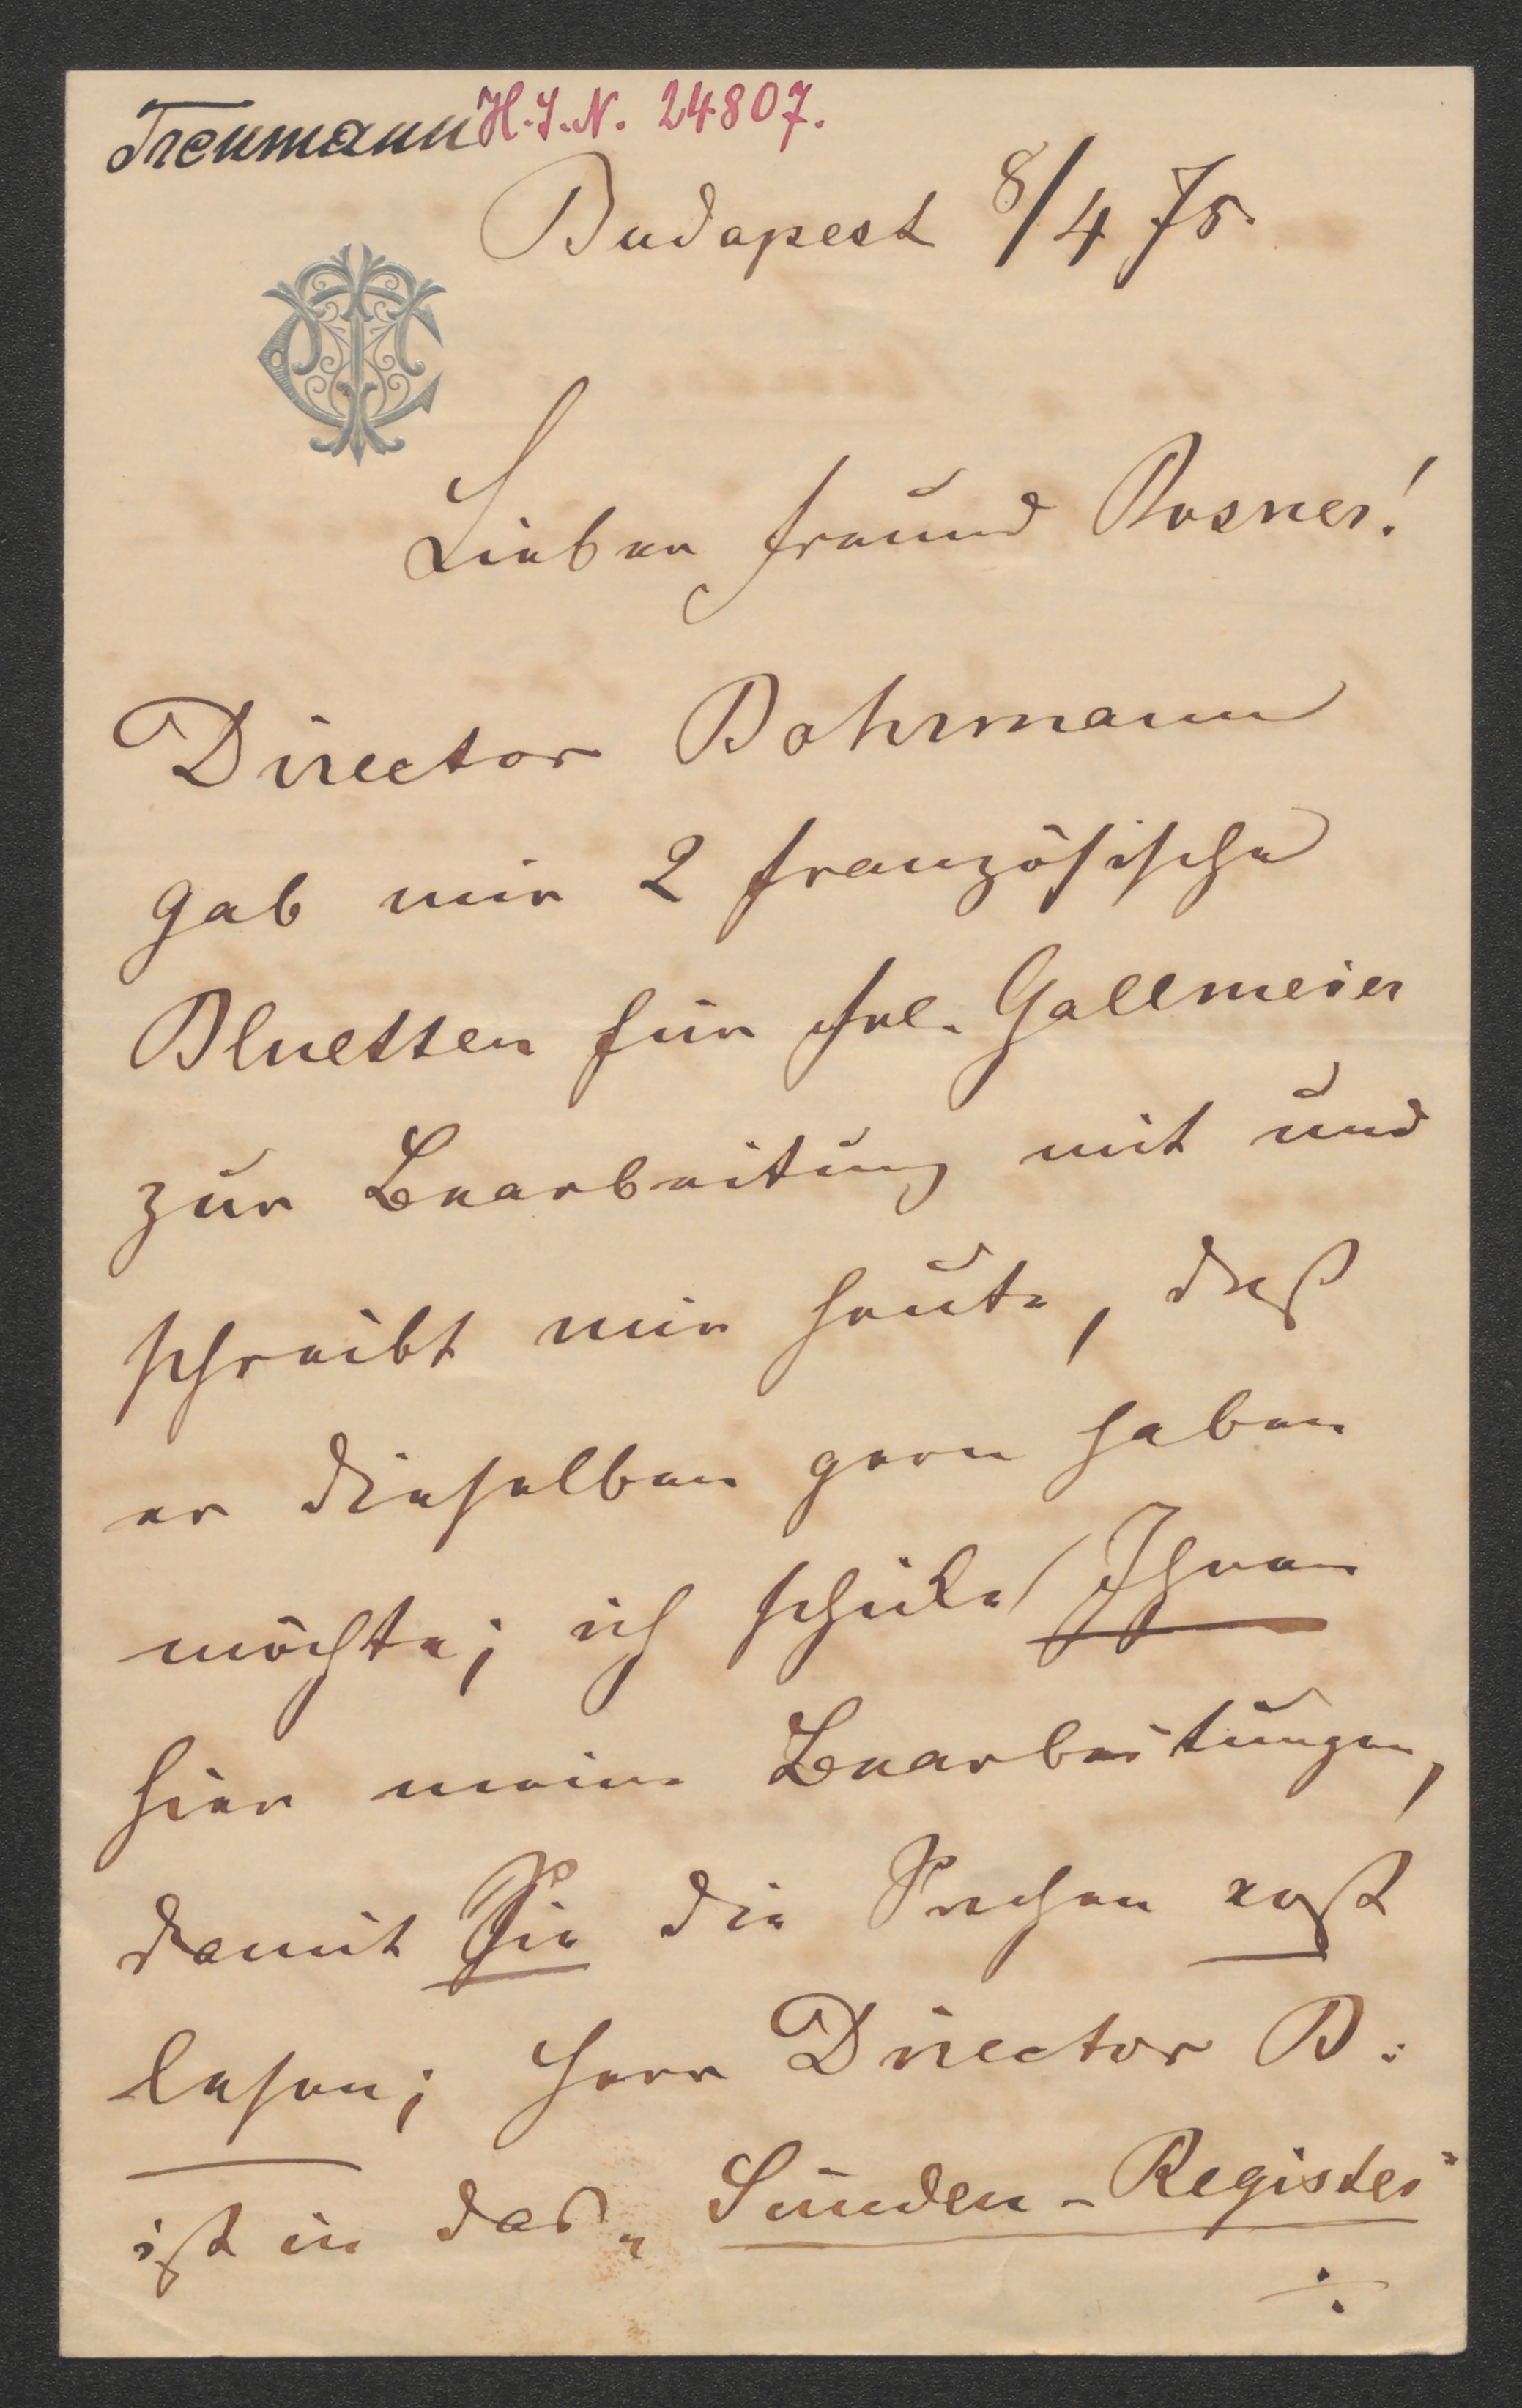 Treumann H.I.N. 24807.
Budapest 8/4 75.
Lieber Freund Rosner!
Director Bohrmann
gab mir 2 französische
Bluetten für Frl. Gallmeier
zur Bearbeitung mit und
schreibt mir heute, daß
er dieselben gern haben
möchte; ich schicke Ihnen
hier meine Bearbeitungen,
damit Sie die Sachen erst
lesen; Herr Director B:
ist in das „Sünden-Register"